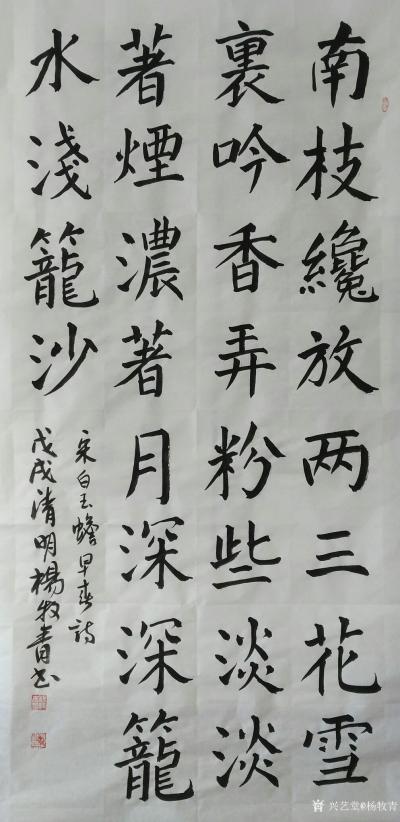 南枝纔放两三花雪
裏吟香弄粉些淡淡
著煙濃著月深深籠
水淺籠沙
宋白玉蟾早春詩
戊戌清明楊牧青书
兴艺堂@杨牧青